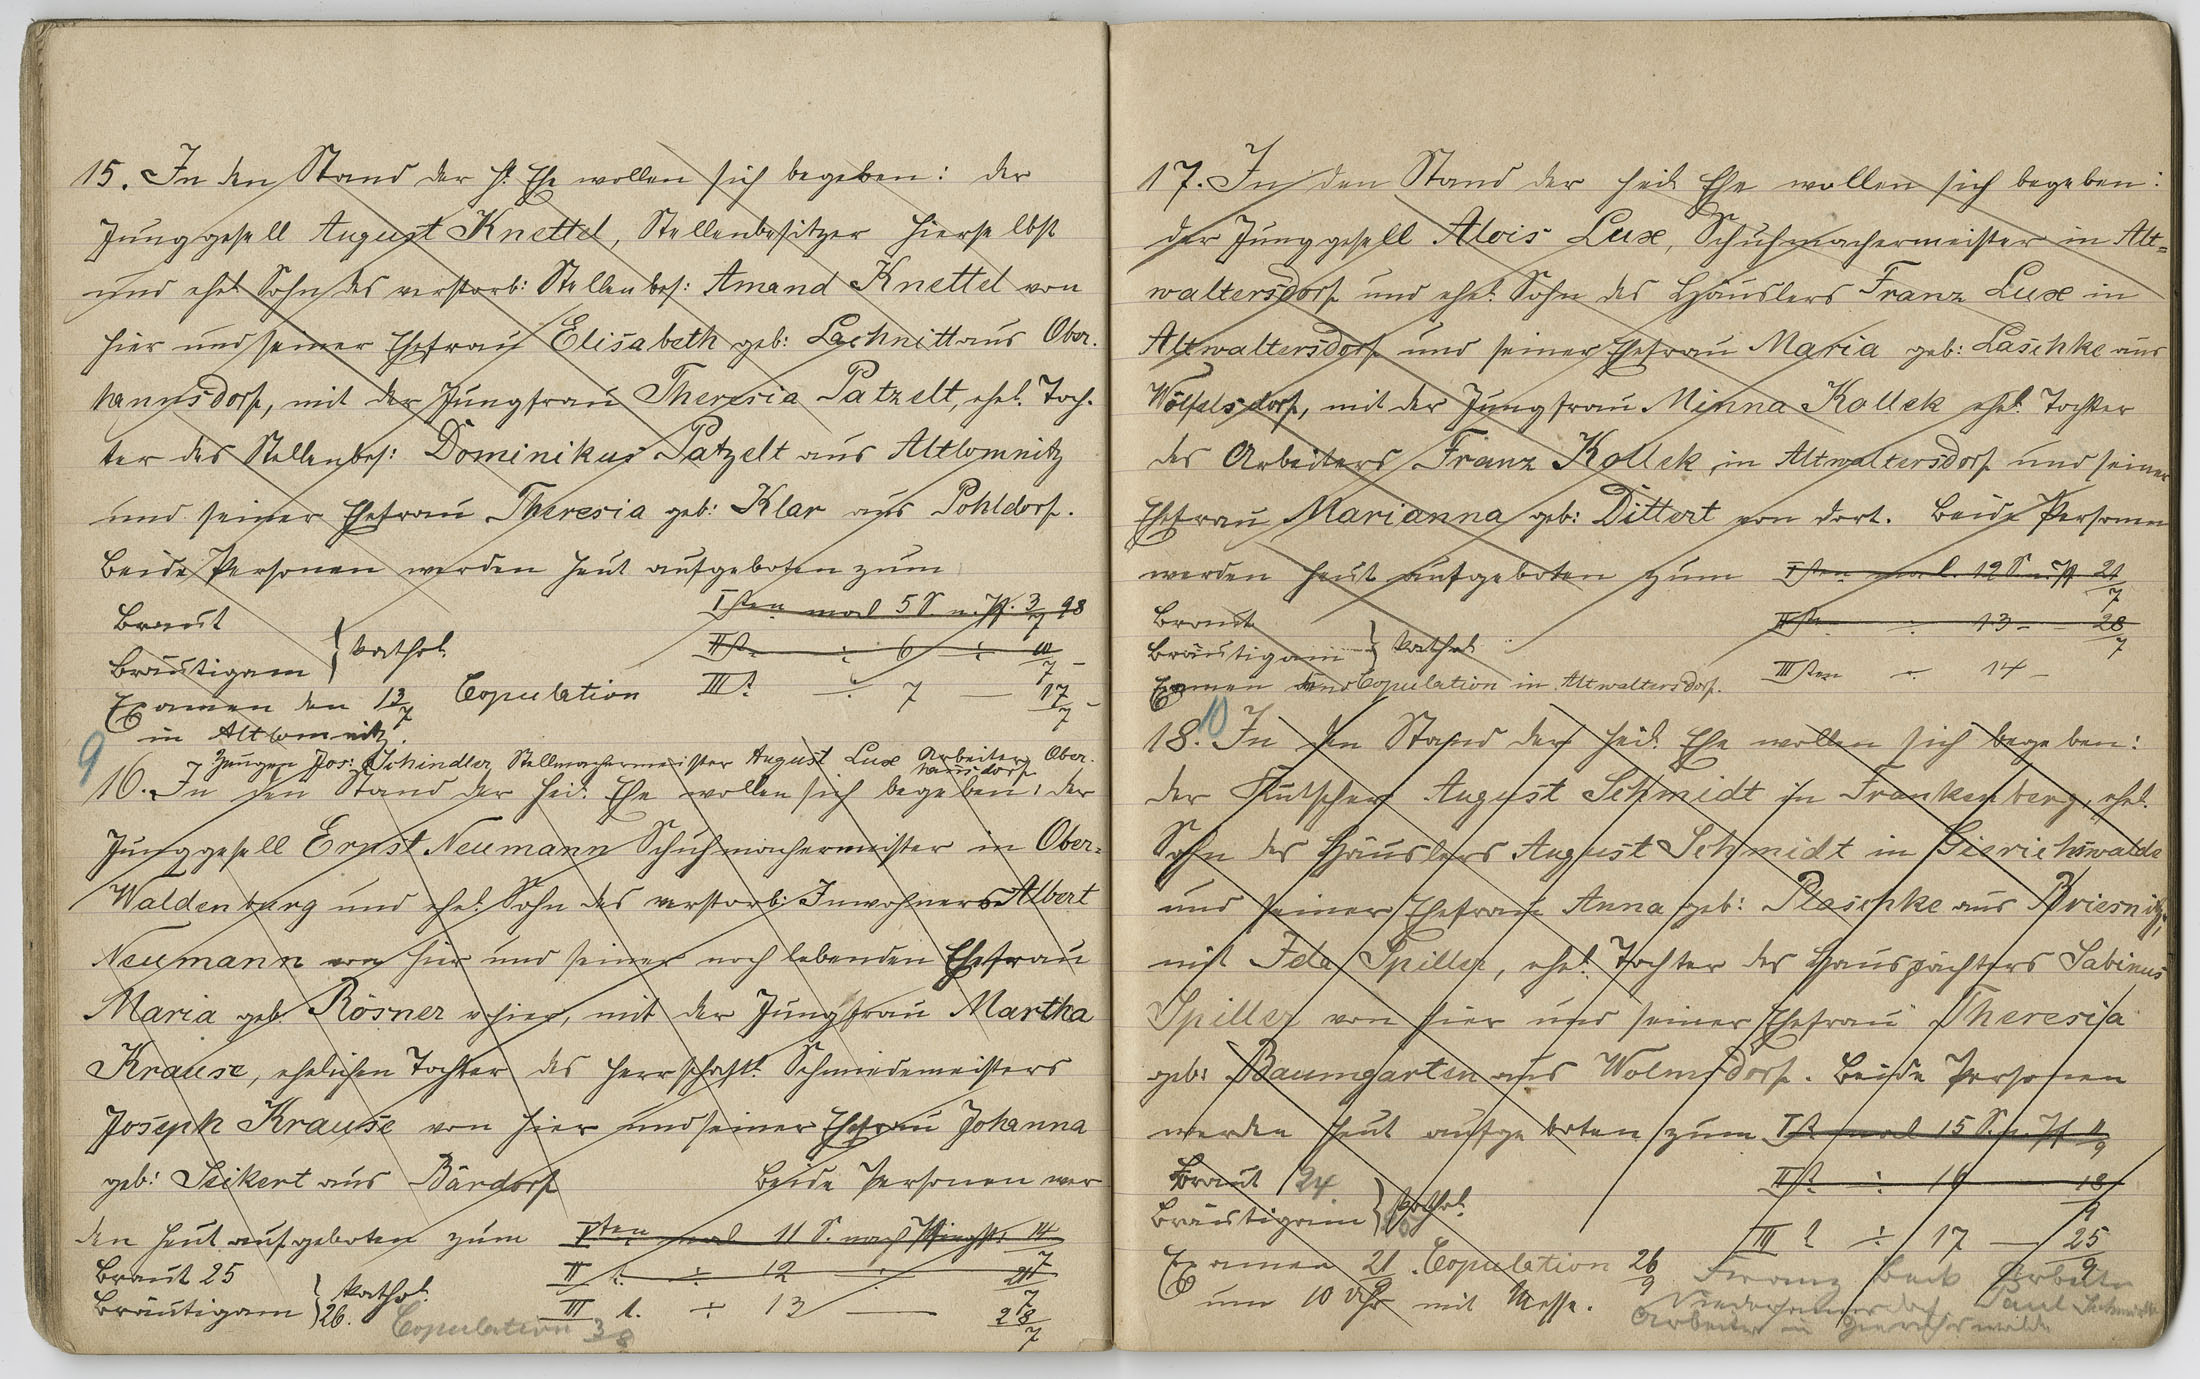 15. In den Stand der h. Ehe wollen sich begeben: der
Junggesell August Knettel, Stellenbesitzer hierselbst
und ehel. Sohn des verstorb: Stellenbes: Amand Knettel von
hier und seiner Ehefrau Elisabeth geb: Lachnitt aus Ober-
hannsdorf, mit der Jungfrau Theresia Patzelt, ehel. Toch-
ter des Stellenbes: Dominikus Patzelt aus Altlomnitz
und seiner Ehefrau Theresia geb: Klar aus Pohldorf.
Beide Personen werden heut aufgeboten zum
Isten mal 5 S. n. Pf. 3/7 98
Braut
IIt. ÷ 6 ÷ 10/7 –
Bräutigam } kathol.
Examen den 13/7 Copulation IIIt. ÷ 7 — 17/7 –
in Altlomnitz.
Zeugen Jos: Schindler, Stellmachermeister August Lux Arbeiter, Ober-
hannsdorf
9
16. In den Stand der heil. Ehe wollen sich begeben: der
Junggesell Ernst Neumann Schuhmachermeister in Ober-
Waldenburg und ehel. Sohn des verstorb: Inwohners Albert
Neumann von hier und seiner noch lebenden Ehefrau
Maria geb. Rösner v hier, mit der Jungfrau Martha
Krause, ehelichen Tochter des herrschaftl. Schmiedemeisters
Joseph Krause von hier und seiner Ehefrau Johanna
geb: Seikert aus Bärdorf Beide Personen wer
den heut aufgeboten zum Isten mal 11 S. nach Pfingst: 14/7
Braut 25 II t. ÷ 12 ÷ 21/7
Bräutigam 26. } kathol. III t. ÷ 13 — 28/7
Copulation 3/8
17. In den Stand der heil. Ehe wollen sich begeben:
der Junggesell Alois Lux, Schuhmachermeister in Alt-
waltersdorf und ehel. Sohn des Häuslers Franz Lux in
Altwaltersdorf und seiner Ehefrau Maria geb: Laschke aus
Wölfelsdorf, mit der Jungfrau Minna Kollek ehel. Tochter
des Arbeiters Franz Kollek in Altwaltersdorf und seiner
Ehefrau Marianna geb: Dittert von dort. Beide Personen
werden heut aufgeboten zum Isten mal. 12 S. n. Pf. 21/7
Braut IIten ÷ 13 – 28/7
Bräutigam } kathol.
Examen und Copulation in Altwaltersdorf. IIIten – 14 –
10
18. In den Stand der heil. Ehe wollen sich begeben:
der Kutscher August Schmidt in Frankenberg, ehel.
Sohn des Häuslers August Schmidt in Gierichswalde
und seiner Ehefrau Anna geb: Plaschke aus Briesnitz,
mit Ida Spiller, ehel. Tochter des Hauspächters Sabinus
Spiller von hier und seiner Ehefrau Theresia
geb: Baumgarten aus Wolmsdorf. Beide Personen
werden heut aufgeboten zum It. mal 15 S. n. Pf 11/9
Braut 24. IIt. ÷ 16 18/9
Bräutigam } kathol.
III t ÷ 17 — 25/9
Examen 21/9. Copulation 26/9
um 10 Uhr mit Messe.
Franz Beck Arbeiter
Niederhannsdorf Paul Schmidt
Arbeiter in Gierichswalde